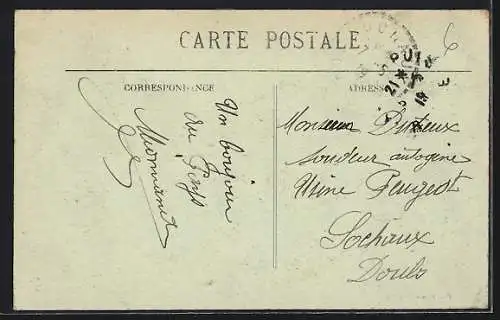 CARTE POSTALE
CORRESPONDANCE
Un bonjour
du Pays
ADRESSE
21
19
Monsieur
soudeur autogène
Usine Peugeot
Sochaux
Doubs
6